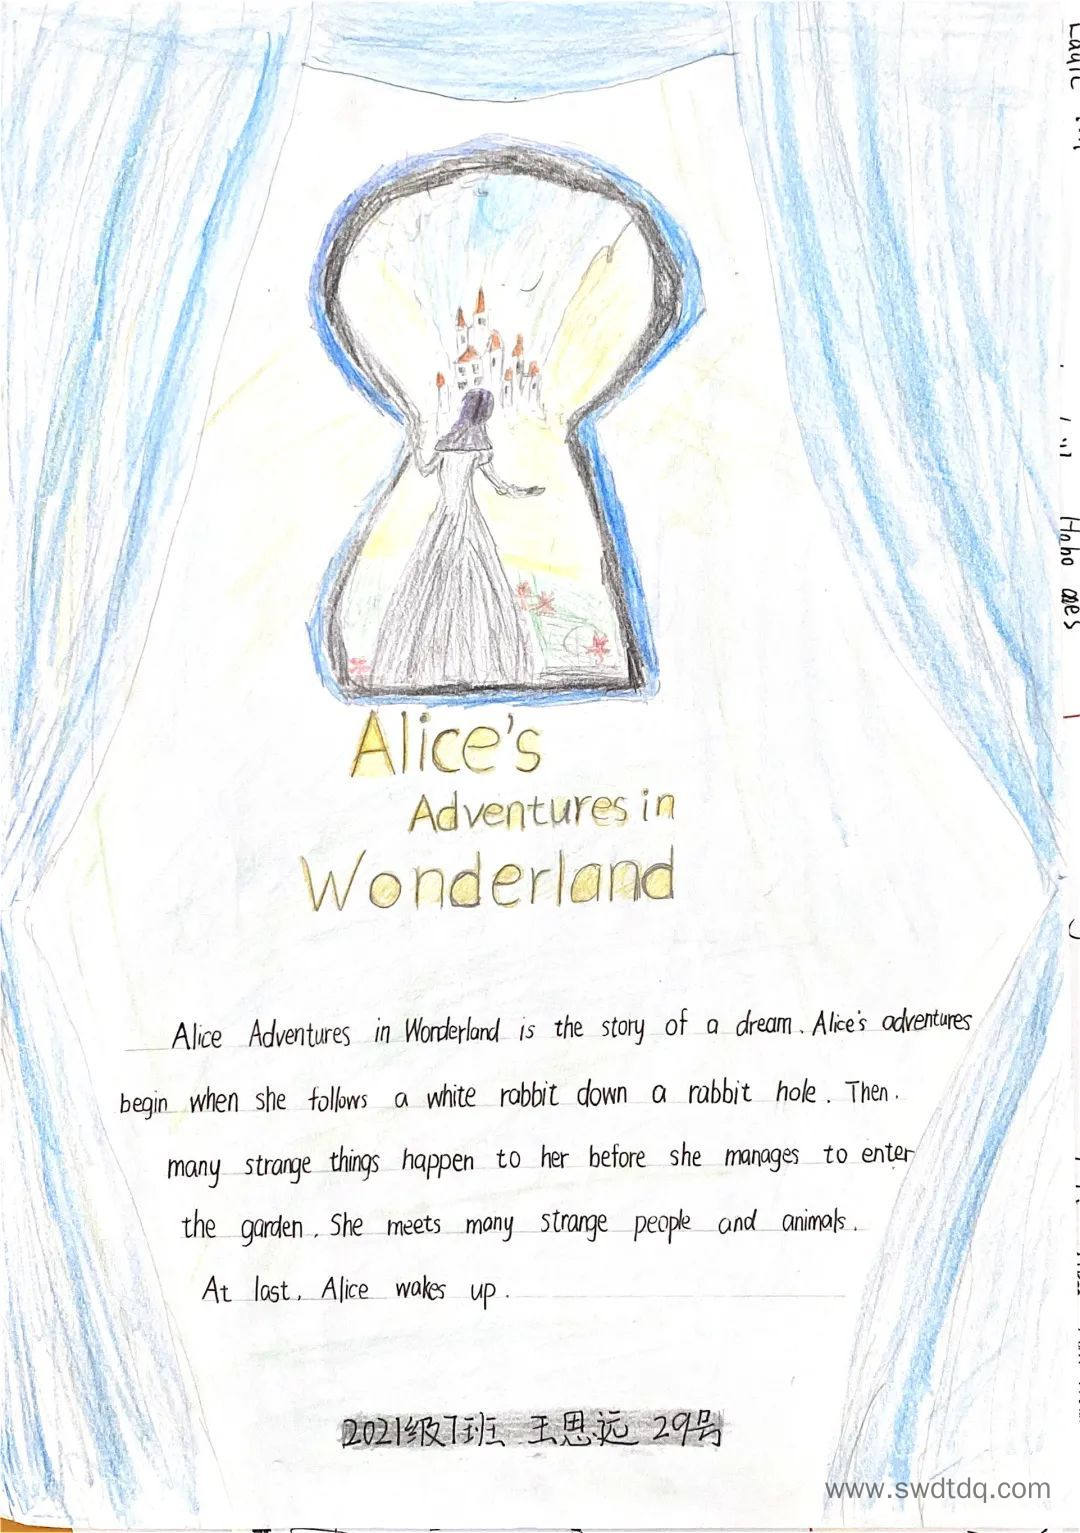 Alice's
Adventures in
Wonderland
Alice Adventures in Wonderland is the story of a dream. Alice's adventures
begin when she follows a white rabbit down a rabbit hole. Then.
many strange things happen to her before she manages to enter
the garden. She meets many strange people and animals.
At last, Alice wakes up.
2021级7班 王思远 29号
www.swdtdq.com